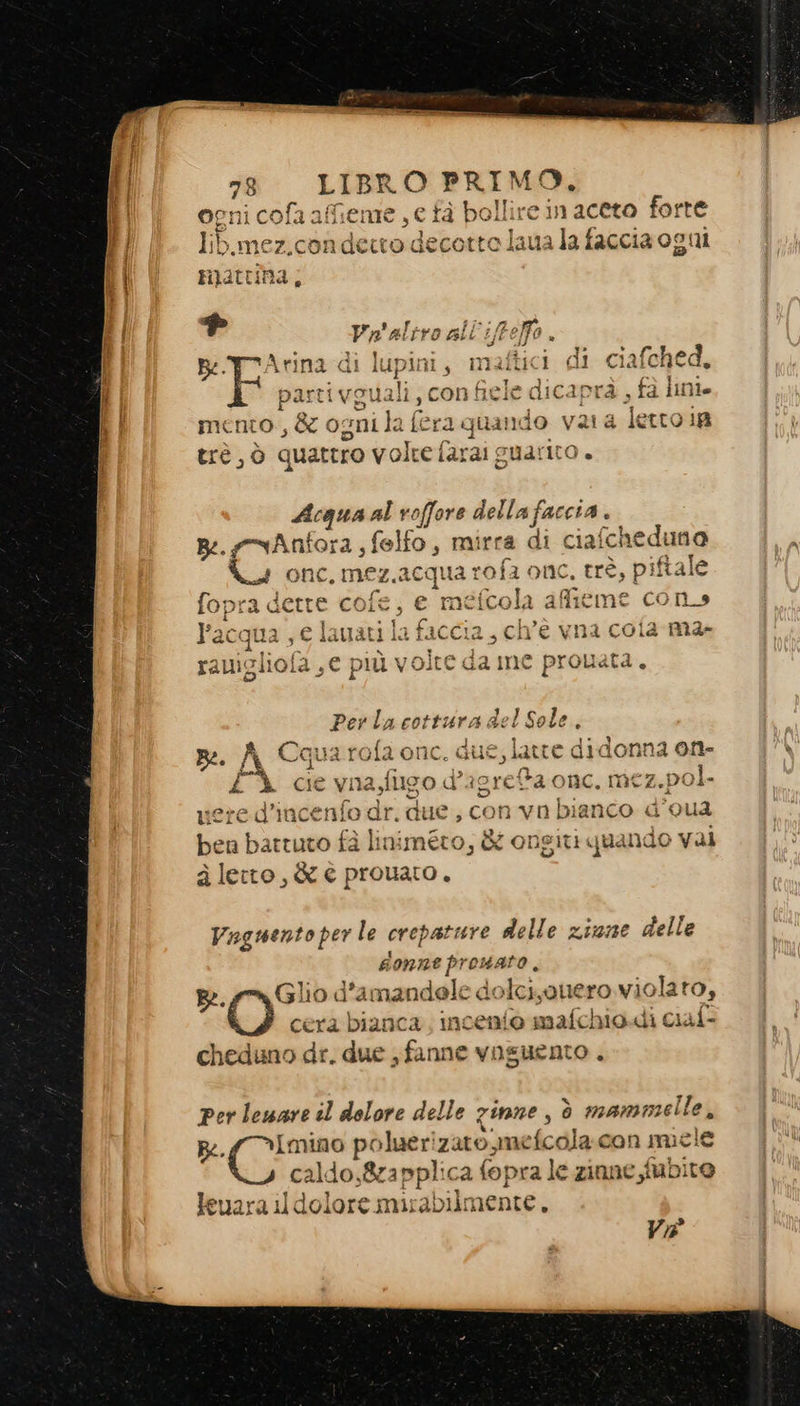 78 LIBRO PRIMO.
ogni coſa aſſieme, e fà bollire in aceto forte
lib.mez.con detto decotto laua la faccia ogni
mattina;
Vn'altro all'iſteſſo.
℞. FArina di lupini, maſtici di ciaſched.
parti vguali, con fiele di capra, fà lini-
mento, & ogni la ſera quando vai a letto in
trè, ò quattro volte ſarai guarito.
Acqua al roſſore della faccia.
℞. CAnfora, ſolfo, mirra di ciaſcheduno
onc. mez. acqua roſa onc. trè, piſtale
ſopra dette coſe, e meſcola aſſieme con
l'acqua, e lauati la faccia, ch'è vna coſa ma-
rauigliosa, e più volte da me prouata.
Per la cottura del Sole.
℞. ACqua roſa onc. due, latte di donna on-
cie vna, ſugo d'agreſta onc. mez. pol-
uere d'incenſo dr. due, con vn bianco d'oua
ben battuto fà linimēto, & ongiti quando vai
à letto, & è prouato.
Vnguento per le crepature delle zinne delle
donne prouato.
℞. OGlio d'amandole dolci, ouero violato,
cera bianca, incenſo maſchio di ciaſ-
cheduno dr. due, fanne vnguento.
Per leuare il dolore delle zinne, ò mammelle.
℞. CImino poluerizato, meſcola con miele
caldo, & applica ſopra le zinne, ſubito
leuara il dolore mirabilmente.
Vn'